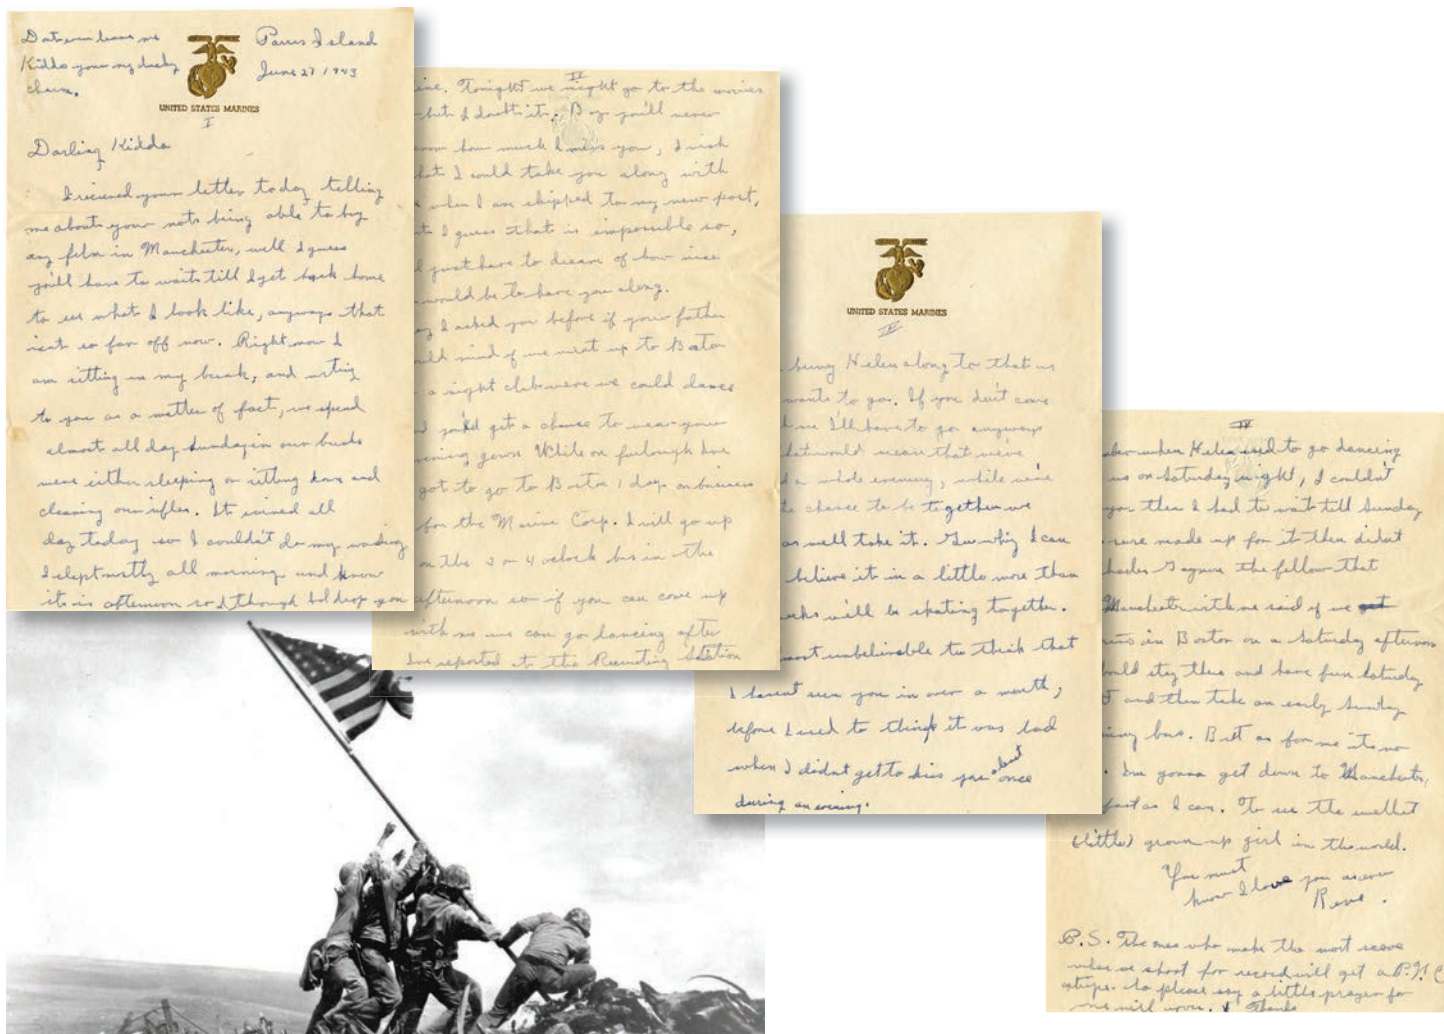 Parris Island
June 27 1943
Kiddo your my ducky
charm.
UNITED STATES MARINES
I
Darling Kiddo
I recieved your letter today telling
me about your not being able to buy
any film in Manchester, well I guess
you'll have to wait till I get back home
to see what I look like, anyways that
isnt so far off now. Right now I
am sitting in my bunk, and writing
to you as a matter of fact, we spend
almost all day Sunday in our bunks
were either sleeping or sitting down and
cleaning our rifles. It rained all
day today so I couldn't do my
I slept mostly all morning and know
it is afternoon so I though I'd drop you
II
ine. Tonight we might go to the movies
but I doubt it. Boy you'll never
know how much I miss you, I wish
that I could take you along with
when I am shipped to my new post,
I guess that is impossible so,
just have to dream of how nice
would be to have you along.
I asked you before if your father
mind if we went up to Boston
a night club were we could dance
you'd get a chance to wear your
evening gown. While on furlough Ive
got to go to Boston 1 day on business
for the Marine Corp. I will go up
on the 3 or 4 oclock bus in the
afternoon so if you can come up
with me we can go dancing after
Ive reported to the Recruiting Station
UNITED STATES MARINES
bring Helen along to that is
wants to go. If you don't come
me I'll have to go anyways
that would mean that we've
a whole evening, while we've
the chance to be together we
as well take it. Gee why I can
believe it in a little more than
we'll be skating together.
most unbelievable to think that
I havent seen you in over a month,
before I used to think it was bad
when I didnt get to kiss you about once
during an evening.
IV
when Helen used to go dancing
us on Saturday night, I couldn't
you then I had to wait till Sunday
sure made up for it then didnt
the fellow that
Manchester with me said if we get
in Boston on a Saturday afternoon
would stay there and have fun Saturday
and then take an early Sunday
bus. But as for me its no
Im gonna get down to Manchester,
fast as I can. To see the
(little) grown up girl in the world.
You must
know I love you as ever
Rene.
P.S. The ones who make the most score
when we shoot for record will get a P.F.C
stripe. So please say a little prayer for
me will you. Thanks